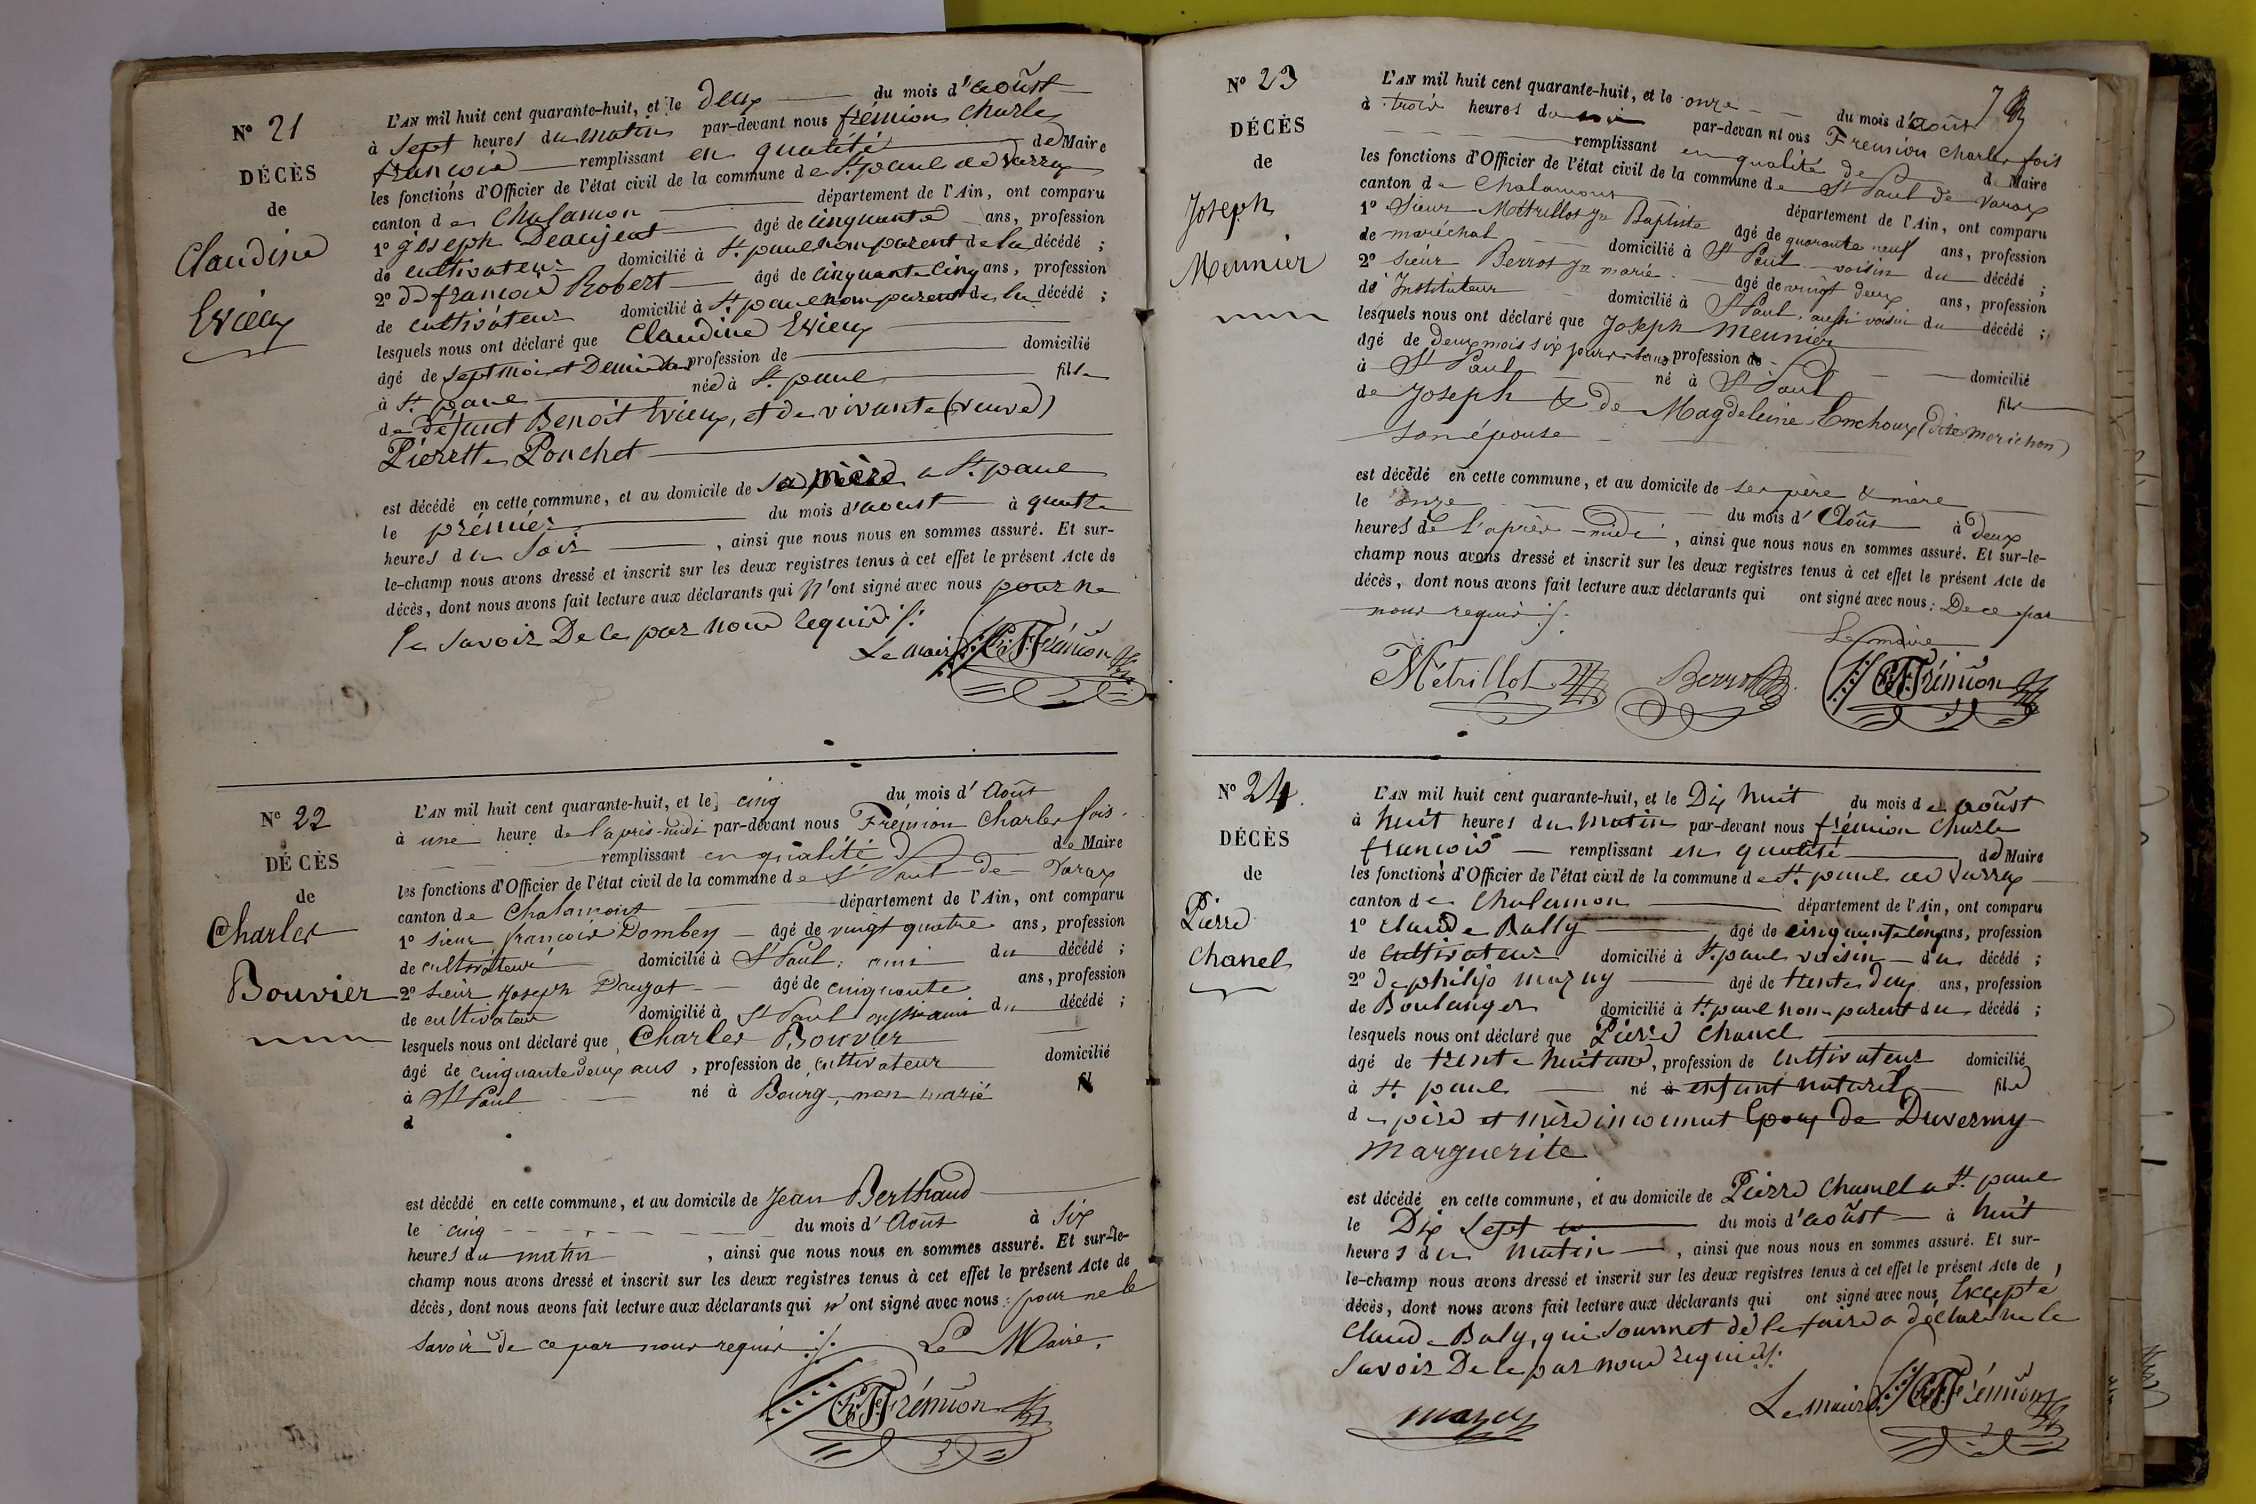 N° 21
DÉCÈS
de
Claudine
Evieux
L'AN mil huit cent quarante-huit, et le deux du mois d'aoûst
à sept heures du matin par-devant nous frémion Charle
françois remplissant en qualité de Maire
les fonctions d'Officier de l'état civil de la commune de St. paul de Varax
canton de Chalamon département de l'Ain, ont comparu
1° joseph âgé de cinquante ans, profession
de cultivateur domicilié à St. paul non parent de la décédé ;
2° De françois Robert âgé de cinquante cinq ans, profession
de cultivateur domicilié à St. paul non parent de la décédé ;
lesquels nous ont déclaré que Claudine Evieux
âgé de sept mois et Demi profession de domicilié
à St. paul née à St. paul fille
de défunt Benoit Evieux, et de vivante (veuve)
Pierette Ponchet
est décédé en cette commune, et au domicile de sa mère a St. paul
le prémier du mois d'aoust à quatre
heures du Soir , ainsi que nous nous en sommes assuré. Et sur-
le-champ nous avons dressé et inscrit sur les deux registres tenus à cet effet le présent Acte de
décès, dont nous avons fait lecture aux déclarants qui n'ont signé avec nous pour ne
le savoir De ce par nous requis ./.
Le maire Ch. F. Frémion
N° 22
DÉCÈS
de
Charles
Bouvier
L'AN mil huit cent quarante-huit, et le cinq du mois d'Août
à une heure de l'après-midi par-devant nous Frémion Charles fois.
remplissant en qualité de Maire
les fonctions d'Officier de l'état civil de la commune de St Paul de Varax
canton de Chalamont département de l'Ain, ont comparu
1° sieur françois Dombey âgé de vingt quatre ans, profession
de cultivateur domicilié à St Paul, ami du décédé ;
2° sieur Joseph âgé de cinquante ans, profession
de cultivateur domicilié à St Paul aussi ami du décédé ;
lesquels nous ont déclaré que Charles Bouvier
âgé de cinquante deux ans , profession de cultivateur domicilié
à St Paul né à Bourg, non marié fil
d
est décédé en cette commune, et au domicile de Jean Berthaud
le cinq du mois d'Août à six
heures du matin , ainsi que nous nous en sommes assuré. Et sur-le-
champ nous avons dressé et inscrit sur les deux registres tenus à cet effet le présent Acte de
décès, dont nous avons fait lecture aux déclarants qui n'ont signé avec nous : pour ne le
savoir de ce par nous requis ./. Le Maire.
Ch. F. Frémion
N° 23
DÉCÈS
de
Joseph
Meunier
L'AN mil huit cent quarante-huit, et le onze du mois d'Août
à trois heures du soir par-devan nt ous Fremion Charles fois
remplissant en qualité de Maire
les fonctions d'Officier de l'état civil de la commune de St Paul de Varax
canton de Chalamont département de l'Ain, ont comparu
1° Sieur Métrillot Jn Baptiste âgé de quarante neuf ans, profession
de maréchal domicilié à St Paul voisin du décédé ;
2° sieur Berrot Jn marie âgé de vingt deux ans, profession
de Instituteur domicilié à St Paul, aussi voisin du décédé ;
lesquels nous ont déclaré que Joseph Meunier
âgé de deux mois six jours profession de domicilié
à St Paul né à St Paul fils
de Joseph & de Magdeleine Enchoux (dite Morichon)
son épouse
est décédé en cette commune, et au domicile de ses père & mère
le onze du mois d'Août à deux
heures de l'après-midi , ainsi que nous nous en sommes assuré. Et sur-le-
champ nous avons dressé et inscrit sur les deux registres tenus à cet effet le présent Acte de
décès, dont nous avons fait lecture aux déclarants qui ont signé avec nous : De ce par
nous requis ./.
Le maire
Métrillot Berrot Ch. F. Frémion
N° 24.
DÉCÈS
de
Pierre
Chanel
L'AN mil huit cent quarante-huit, et le Dix huit du mois de aoûst
à huit heures du matin par-devant nous frémion Charle
françois remplissant en qualité de Maire
les fonctions d'Officier de l'état civil de la commune de St. paul de Varrax
canton de Chalamon département de l'Ain, ont comparu
1° Claude Bally âgé de cinquante cinq ans, profession
de Cultivateur domicilié à St. paul voisin du décédé ;
2° De philipp mazuy âgé de trente deux ans, profession
de Boulanger domicilié à St. paul non parent du décédé ;
lesquels nous ont déclaré que Pierre Chanel
âgé de trente huit ans, profession de Cultivateur domicilié
à St. paul né à enfant naturel fils
de père et mère inconnut Epoux De Duvermy
Marguerite
est décédé en cette commune, et au domicile de Pierre Chanel a St. paul
le Dix Sept du mois d'aoûst à huit
heures du matin , ainsi que nous nous en sommes assuré. Et sur-
le-champ nous avons dressé et inscrit sur les deux registres tenus à cet effet le présent Acte de
décès, dont nous avons fait lecture aux déclarants qui ont signé avec nous, Excepté
Claude Baly, qui sommet de le faire a déclaré ne le
savoir De ce par nous requis ./.
Le maire Ch. F. Frémion
mazuy